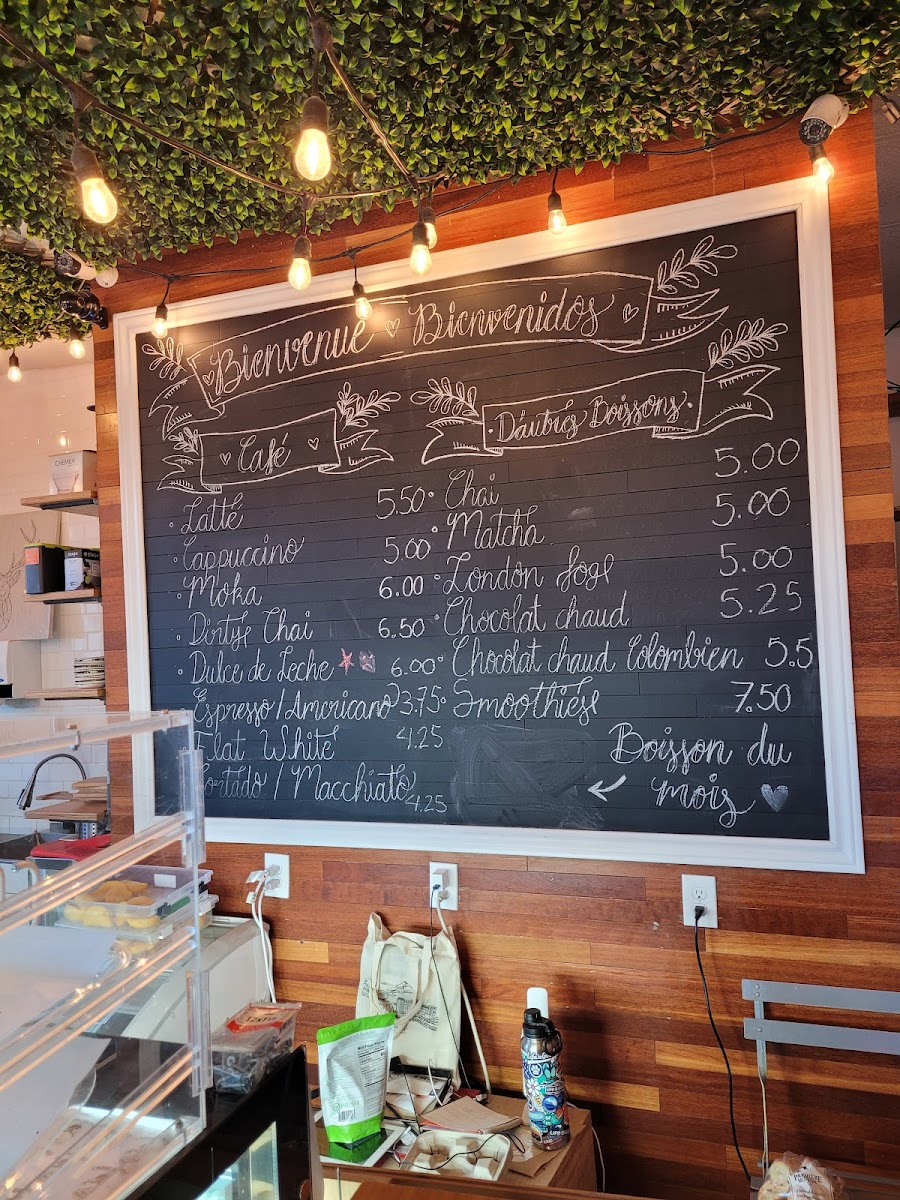 Bienvenue Bienvenidos
Café
Latté 5.50
Cappuccino 5.00
Moka 6.00
Dirty Chai 6.50
Dulce de Leche 6.00
Espresso / Americano 3.75
Flat White 4.25
Cortado / Macchiato 4.25
D'autres Boissons
Chai 5.00
Matcha 5.00
London fog 5.00
Chocolat chaud 5.25
Chocolat chaud Colombien 5.5
Smoothies 7.50
Boisson du
mois
CHEMEX